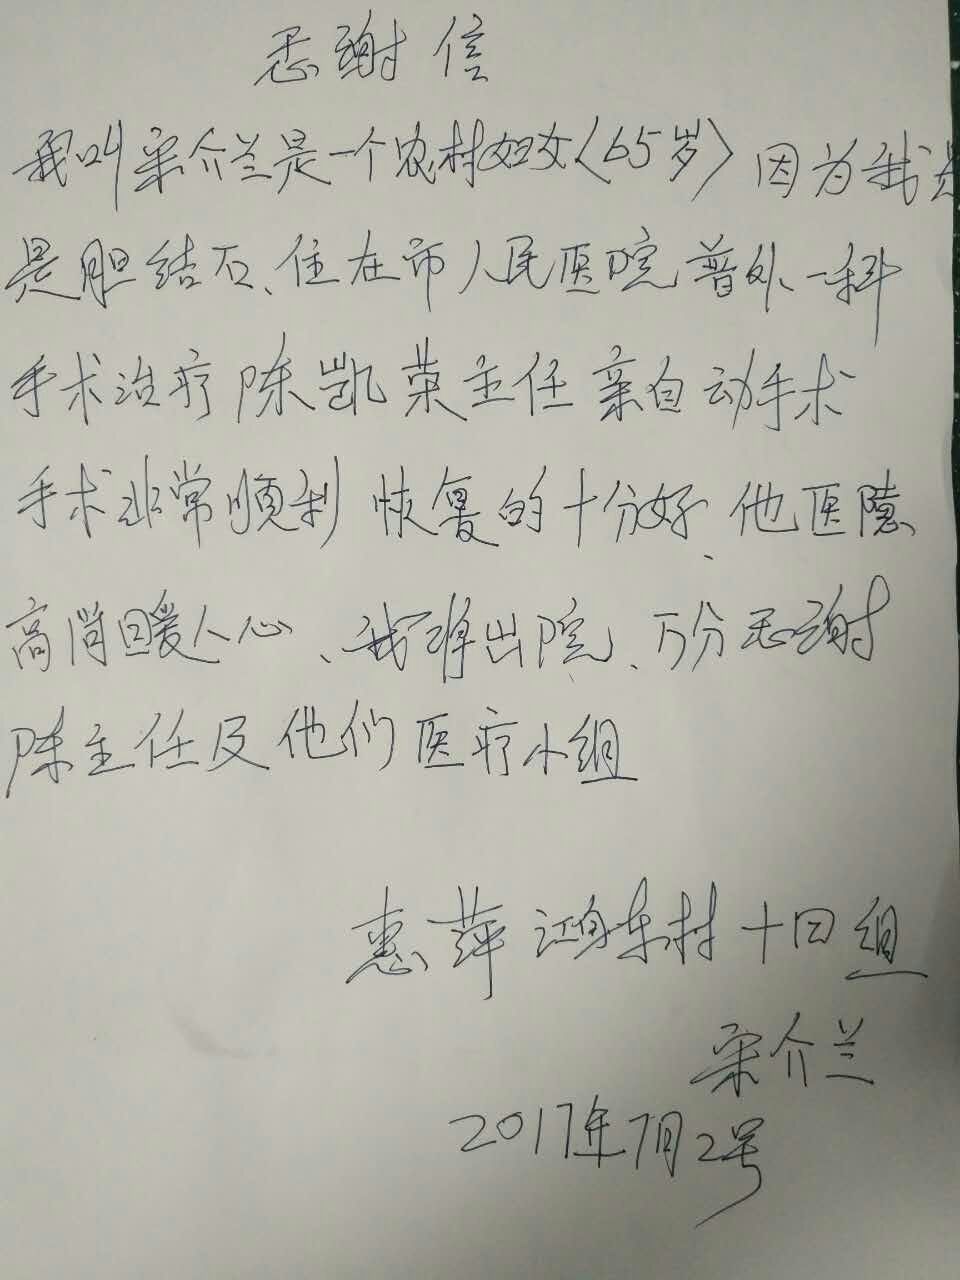 感谢信
我叫宋介兰是一个农村妇女(65岁)因为我
是胆结石、住在市人民医院普外一科
手术治疗陈凯荣主任亲自动手术
手术非常顺利恢复的十分好、他医德
高尚暖人心、我将出院、万分感谢
陈主任及他们医疗小组
惠萍鸿东村十四组
宋介兰
2017年7月2号